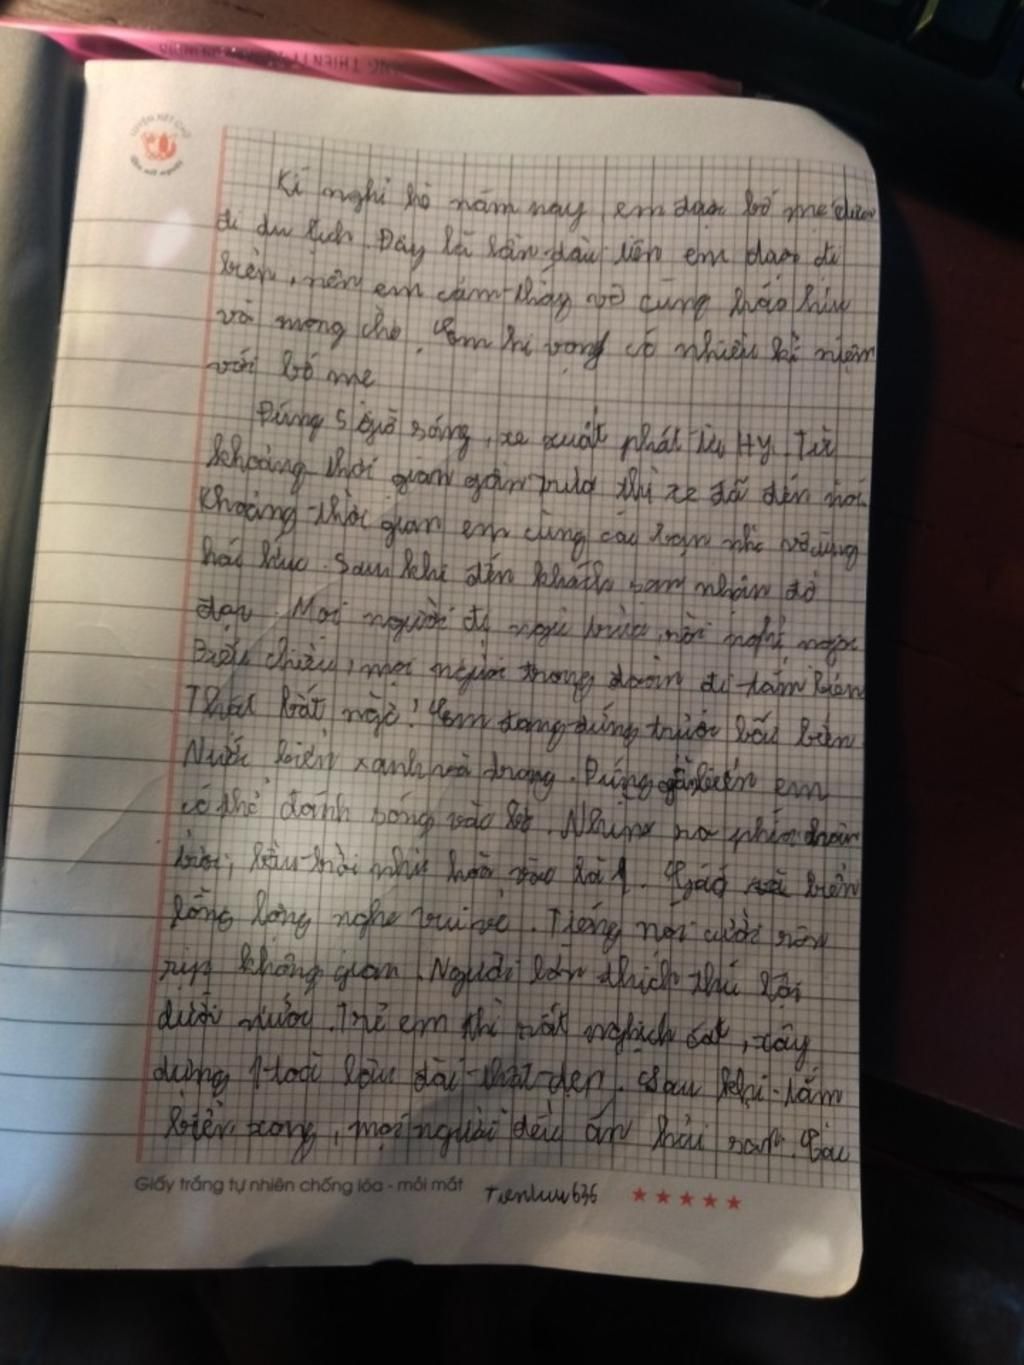 LUYỆN NÉT CHỮ
Kì nghỉ hè năm nay, em được bố mẹ đưa
đi du lịch. Đây là lần đầu tiên em được đi
biển, nên em cảm thấy vô cùng háo hức
và mong chờ. Em hi vọng có nhiều kỉ niệm
với bố mẹ
Đúng 5 giờ sáng, xe xuất phát từ Hy. Từ
khoảng thời gian gần trưa thì xe đã đến nơi
Khoảng thời gian em cùng các bạn nhỏ vô cùng
háo hức. Sau khi đến khách sạn nhận đồ
đạc. Mọi người đi ngủ trưa, rồi nghỉ ngơi
Buổi chiều, mọi người trong đoàn đi tắm biển
Thật bất ngờ! Em đang đứng trước bãi biển
Nước biển xanh và trong. Đứng gần biển em
có thể đánh sóng vào bờ. Nhìn ra phía chân
trời, bầu trời như hoà vào là 1. Gió biển
lồng lộng nghe vui vẻ. Tiếng nói cười rộn
rịp không gian. Người lớn thích thú lội
dưới nước. Trẻ em thì rất nghịch cát, xây
dựng 1 toà lâu đài thật đẹp. Sau khi tắm
biển xong, mọi người đều ăn hải sản. Các
Giấy trắng tự nhiên chống lóa - mỏi mắt
Tienluu636